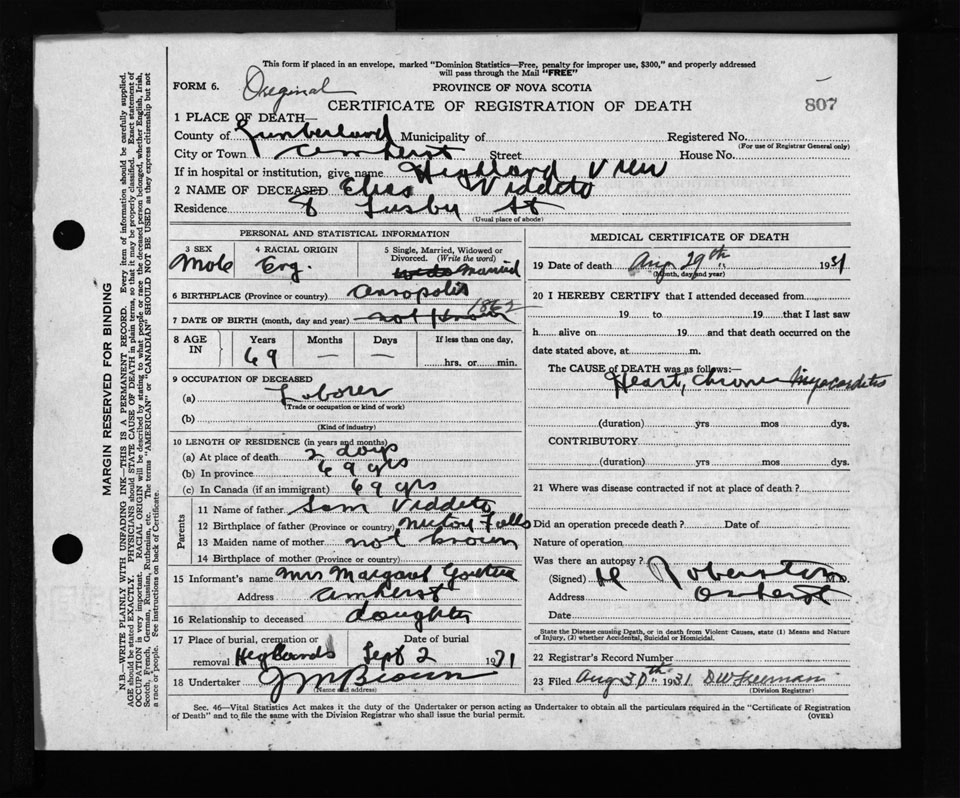 This form if placed in an envelope, marked "Dominion Statistics—Free, penalty for improper use, $300," and properly addressed
will pass through the Mail "FREE"
FORM 6. Original PROVINCE OF NOVA SCOTIA
CERTIFICATE OF REGISTRATION OF DEATH 807
1 PLACE OF DEATH—
County of Cumberland Municipality of Registered No.
(For use of Registrar General only)
City or Town Amherst Street House No.
If in hospital or institution, give name Highland View
2 NAME OF DECEASED Elias Viddeto
Residence 8 Lusby St
(Usual place of abode)
PERSONAL AND STATISTICAL INFORMATION
3 SEX 4 RACIAL ORIGIN 5 Single, Married, Widowed or
Divorced. (Write the word)
Male Eng. Married
6 BIRTHPLACE (Province or country) Annopolis
7 DATE OF BIRTH (month, day and year) not known 1862
8 AGE IN Years Months Days If less than one day,
69 — — hrs. or min.
9 OCCUPATION OF DECEASED
(a) Laborer
(Trade or occupation or kind of work)
(b)
(Kind of industry)
10 LENGTH OF RESIDENCE (in years and months)
(a) At place of death 2 days
(b) In province 69 yrs
(c) In Canada (if an immigrant) 69 yrs
Parents
11 Name of father Sam Viddeto
12 Birthplace of father (Province or country) Falls
13 Maiden name of mother not known
14 Birthplace of mother (Province or country)
15 Informant's name Mrs Margaret
Address Amherst
16 Relationship to deceased daughter
17 Place of burial, cremation or removal Date of burial
Highlands Sept 2 1931
18 Undertaker J M Brown
(Name and address)
MEDICAL CERTIFICATE OF DEATH
19 Date of death Aug 29th 1931
(Month, day and year)
20 I HEREBY CERTIFY that I attended deceased from
19 to 19 that I last saw
h alive on 19 and that death occurred on the
date stated above, at m.
The CAUSE of DEATH was as follows:—
Heart, Chronic Myocarditis
(duration) yrs mos dys.
CONTRIBUTORY
(duration) yrs mos dys.
21 Where was disease contracted if not at place of death?
Did an operation precede death? Date of
Nature of operation
Was there an autopsy?
(Signed) M.D.
Address Amherst
Date
State the Disease causing Death, or in death from Violent Causes, state (1) Means and Nature
of Injury, (2) whether Accidental, Suicidal or Homicidal.
22 Registrar's Record Number
23 Filed Aug 30th 1931 D W Freeman
(Division Registrar)
Sec. 46—Vital Statistics Act makes it the duty of the Undertaker or person acting as Undertaker to obtain all the particulars required in the "Certificate of Registration
of Death" and to file the same with the Division Registrar who shall issue the burial permit. (OVER)
MARGIN RESERVED FOR BINDING
N.B.—WRITE PLAINLY WITH UNFADING INK—THIS IS A PERMANENT RECORD. Every item of information should be carefully supplied.
AGE should be stated EXACTLY. PHYSICIANS should STATE CAUSE OF DEATH in plain terms, so that it may be properly classified. Exact statement of
OCCUPATION is very important. RACIAL ORIGIN will be described by stating to what people or race the deceased person belonged, whether English, Irish,
Scotch, French, German, Russian, Ruthenian, etc. The terms "AMERICAN" or "CANADIAN" SHOULD NOT BE USED as they express citizenship but not
a race or people. See instructions on back of Certificate.